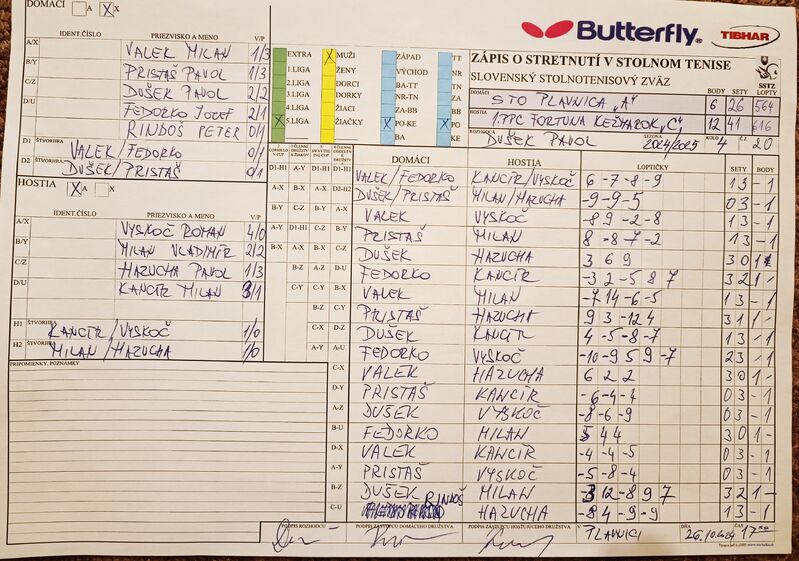 DOMÁCI A X X
IDENT.ČÍSLO PRIEZVISKO A MENO V/P
A/X VALEK MILAN 1/3
B/Y PRISTAŠ PAVOL 1/3
C/Z DUŠEK PAVOL 2/2
D/U FEDORKO JOZEF 2/1
RINDOŠ PETER 0/1
D1 ŠTVORHRA VALEK/FEDORKO 0/1
D2 ŠTVORHRA DUŠEK/PRISTAŠ 0/1
HOSTIA X A X
IDENT.ČÍSLO PRIEZVISKO A MENO V/P
A/X VYSKOČ ROMAN 4/0
B/Y MILAN VLADIMÍR 2/2
C/Z HAZUCHA PAVOL 1/3
D/U KANCÍR MILAN 3/1
H1 ŠTVORHRA KANCÍR/VYSKOČ 1/0
H2 ŠTVORHRA MILAN/HAZUCHA 1/0
PRIPOMIENKY, POZNÁMKY
EXTRA X MUŽI ZÁPAD TT
1.LIGA ŽENY VÝCHOD NR
2.LIGA DORCI BA-TT ZA
3.LIGA DORKY NR-TN
4.LIGA ŽIACI ZA-BB
X 5.LIGA ŽIAČKY X PO-KE X PO
BA KE
Butterfly TIBHAR
ZÁPIS O STRETNUTÍ V STOLNOM TENISE
SLOVENSKÝ STOLNOTENISOVÝ ZVÄZ
SSTZ
BODY SETY LOPTY
DOMÁCI STO PLAVNICA "A" 6 26 564
HOSTIA 1.PPC FORTUNA KEŽMAROK "C" 12 41 616
ROZHODCA DUŠEK PAVOL SEZÓNA 2024/2025 KOLO 4 Č.Z 20
DOMÁCI HOSTIA LOPTIČKY SETY BODY
VALEK/FEDORKO KANCÍR/VYSKOČ 6 -7 -8 -9 1 3 - 1
DUŠEK/PRISTAŠ MILAN/HAZUCHA -9 -9 -5 0 3 - 1
VALEK VYSKOČ -8 9 -2 -8 1 3 - 1
PRISTAŠ MILAN 8 -8 -7 -2 1 3 - 1
DUŠEK HAZUCHA 3 6 9 3 0 1 -
FEDORKO KANCÍR -3 2 -5 8 7 3 2 1 -
VALEK MILAN -7 14 -6 -5 1 3 - 1
PRISTAŠ HAZUCHA 9 3 -12 4 3 1 1 -
DUŠEK KANCÍR 4 -5 -8 -7 1 3 - 1
FEDORKO VYSKOČ -10 -9 5 9 -7 2 3 - 1
C-X VALEK HAZUCHA 6 2 2 3 0 1 -
D-Y PRISTAŠ KANCÍR -6 -4 -4 0 3 - 1
A-Z DUŠEK VYSKOČ -8 -6 -9 0 3 - 1
B-U FEDORKO MILAN 5 4 4 3 0 1 -
D-X VALEK KANCÍR -4 -4 -5 0 3 - 1
A-Y PRISTAŠ VYSKOČ -5 -8 -4 0 3 - 1
B-Z DUŠEK MILAN -3 12 -8 9 7 3 2 1 -
C-U RINDOŠ HAZUCHA -8 4 -9 -9 1 3 - 1
PODPIS ROZHODCU PODPIS ZÁSTUPCU DOMÁCEHO DRUŽSTVA PODPIS ZÁSTUPCU HOSŤUJÚCEHO DRUŽSTVA V PLAVNICI DŇA 26.10.2024 ČAS 17 00